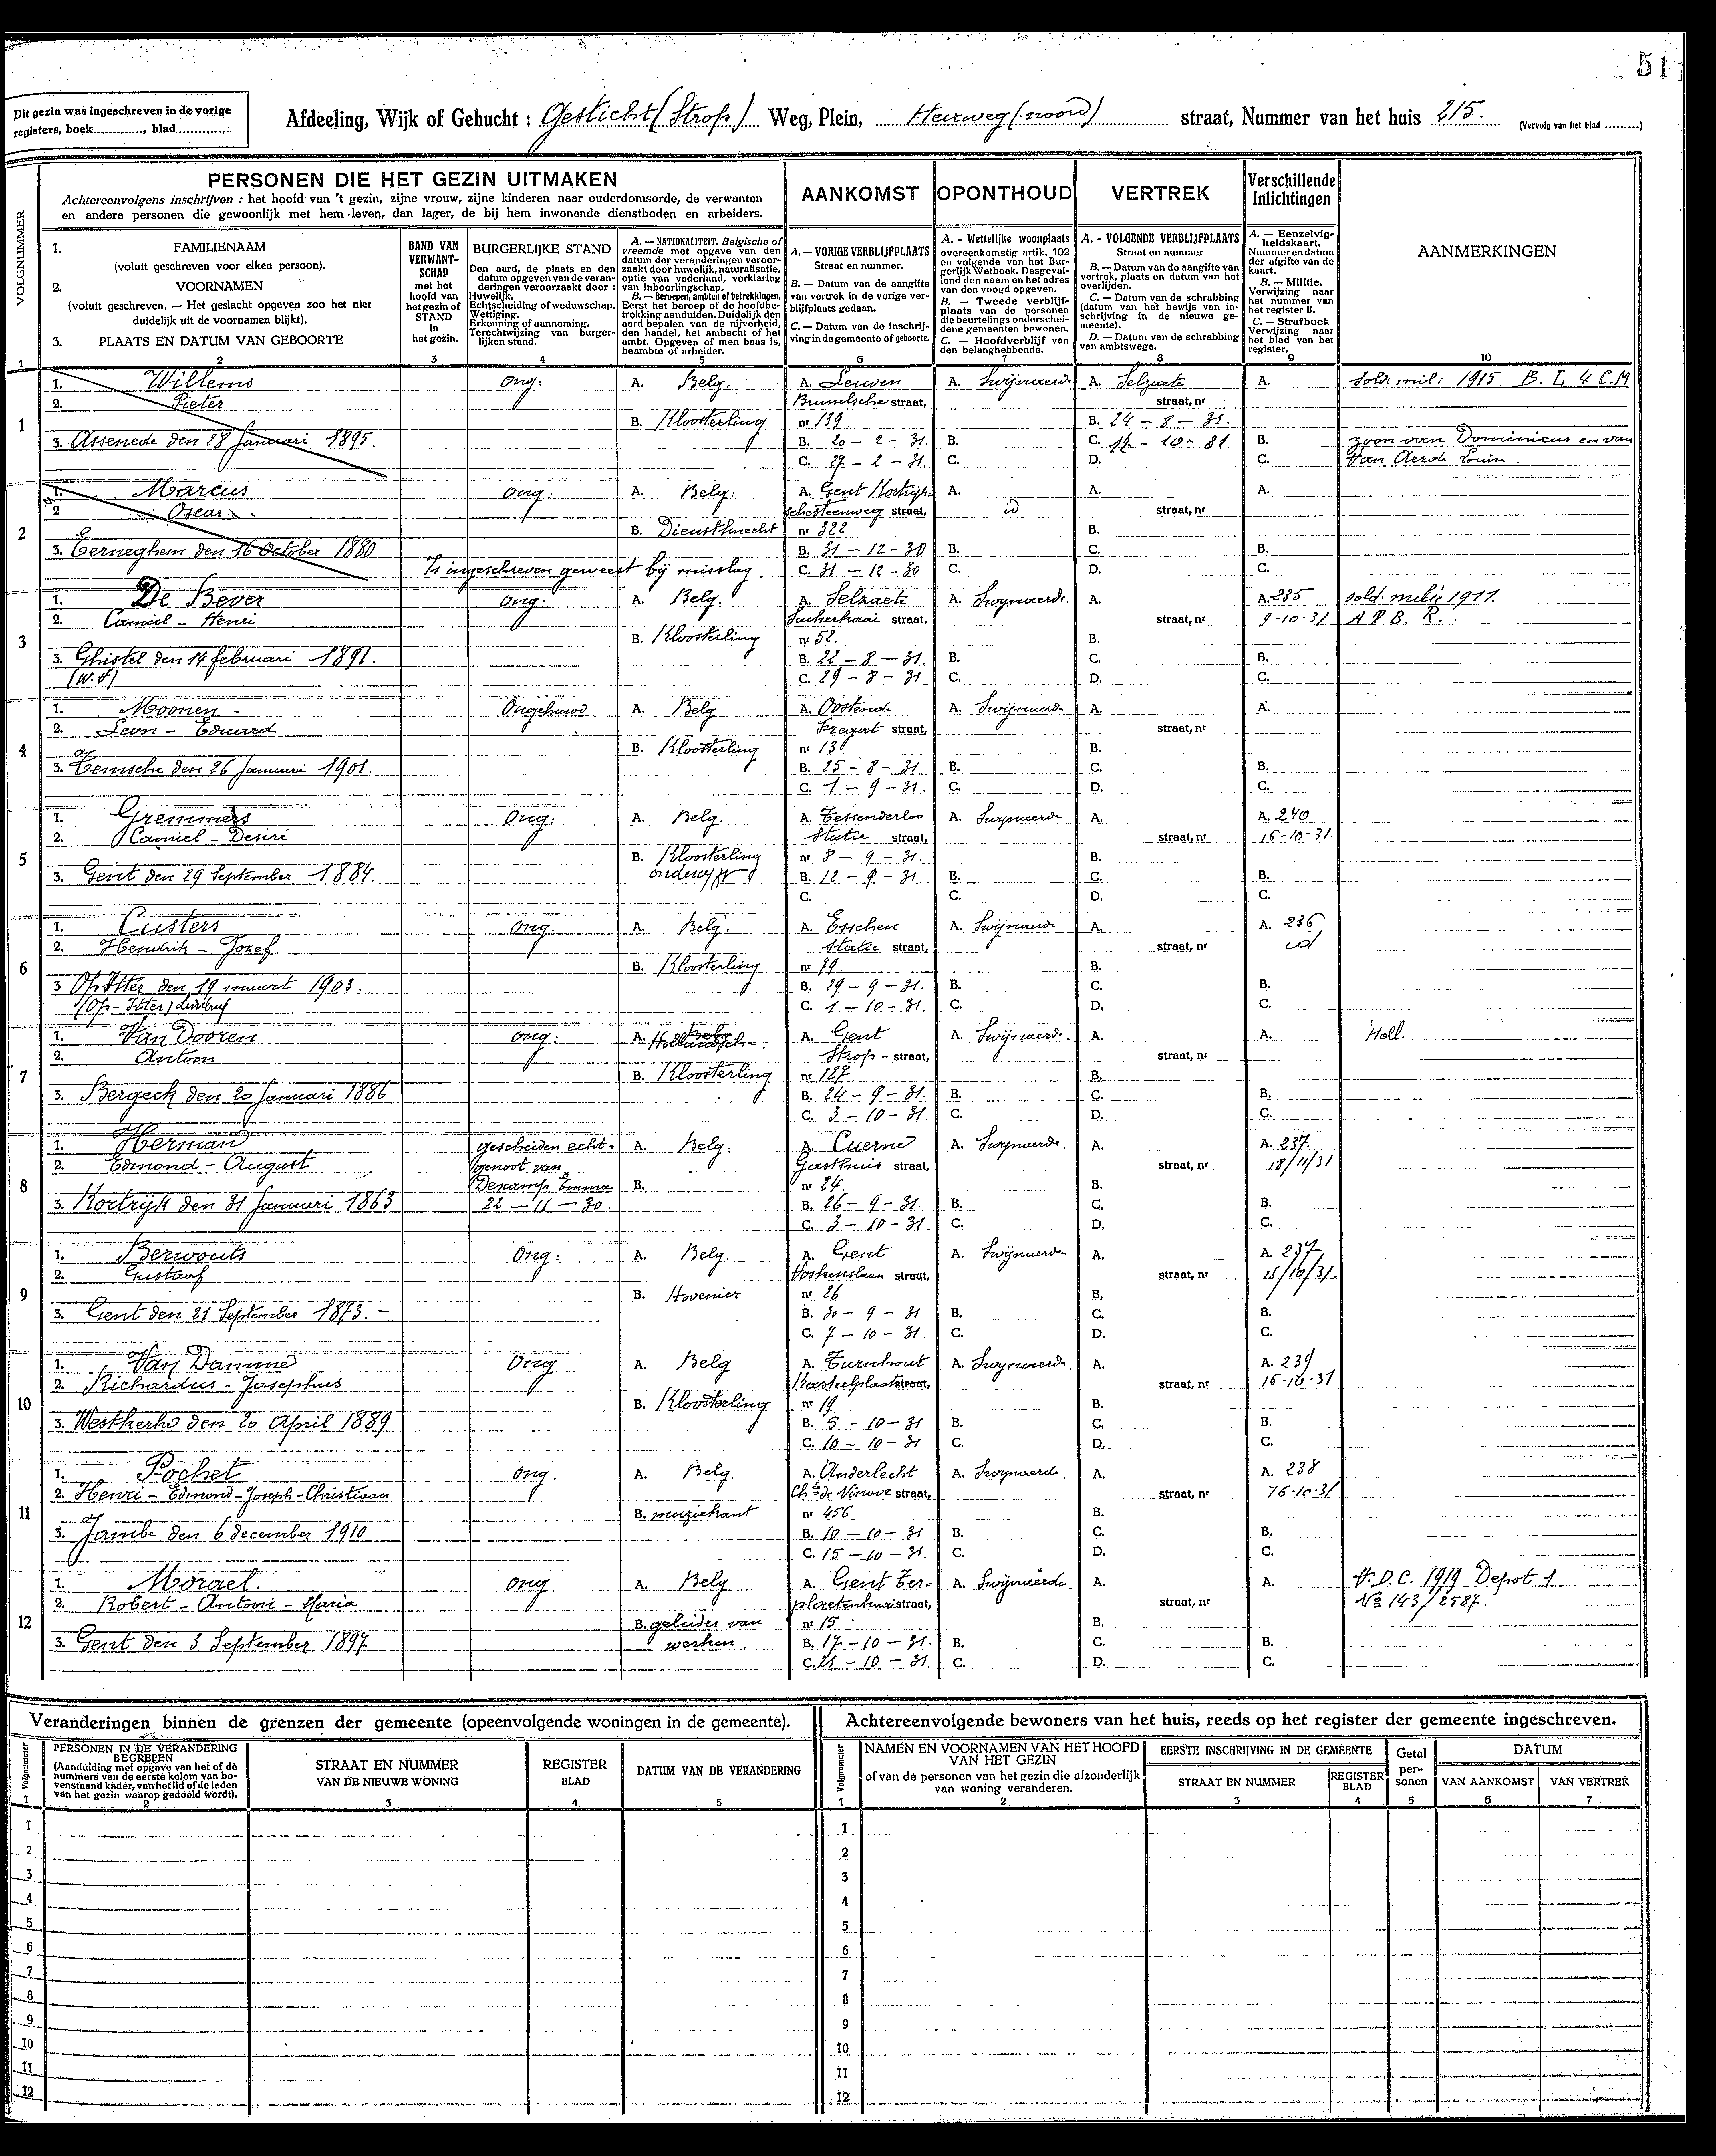 51
Dit gezin was ingeschreven in de vorige
registers, boek............, blad...............
Afdeeling, Wijk of Gehucht : Gesticht (Strop) Weg, Plein, Heirweg (noord) straat, Nummer van het huis 215. (Vervolg van het blad .........)
VOLGNUMMER
1
PERSONEN DIE HET GEZIN UITMAKEN
Achtereenvolgens inschrijven : het hoofd van 't gezin, zijne vrouw, zijne kinderen naar ouderdomsorde, de verwanten
en andere personen die gewoonlijk met hem leven, dan lager, de bij hem inwonende dienstboden en arbeiders.
1. FAMILIENAAM
(voluit geschreven voor elken persoon).
2. VOORNAMEN
(voluit geschreven. — Het geslacht opgeven zoo het niet
duidelijk uit de voornamen blijkt).
3. PLAATS EN DATUM VAN GEBOORTE
2
BAND VAN
VERWANT-
SCHAP
met het
hoofd van
het gezin of
STAND
in
het gezin.
3
BURGERLIJKE STAND
Den aard, de plaats en den
datum opgeven van de veran-
deringen veroorzaakt door :
Huwelijk.
Echtscheiding of weduwschap.
Wettiging.
Erkenning of aanneming.
Terechtwijzing van burger-
lijken stand.
4
A. — NATIONALITEIT. Belgische of
vreemde met opgave van den
datum der veranderingen veroor-
zaakt door huwelijk, naturalisatie,
optie van vaderland, verklaring
van inboorlingschap.
B. — Beroepen, ambten of betrekkingen.
Eerst het beroep of de hoofdbe-
trekking aanduiden. Duidelijk den
aard bepalen van de nijverheid,
den handel, het ambacht of het
ambt. Opgeven of men baas is,
beambte of arbeider.
5
AANKOMST
A. — VORIGE VERBLIJFPLAATS
Straat en nummer.
B. — Datum van de aangifte
van vertrek in de vorige ver-
blijfplaats gedaan.
C. — Datum van de inschrij-
ving in de gemeente of geboorte.
6
OPONTHOUD
A. - Wettelijke woonplaats
overeenkomstig artik. 102
en volgende van het Bur-
gerlijk Wetboek. Desgeval-
lend den naam en het adres
van den voogd opgeven.
B. — Tweede verblijf-
plaats van de personen
die beurtelings onderschei-
dene gemeenten bewonen.
C. — Hoofdverblijf van
den belanghebbende.
7
VERTREK
A. - VOLGENDE VERBLIJFPLAATS
Straat en nummer
B. — Datum van de aangifte van
vertrek, plaats en datum van het
overlijden.
C. — Datum van de schrabbing
(datum van het bewijs van in-
schrijving in de nieuwe ge-
meente).
D. — Datum van de schrabbing
van ambtswege.
8
Verschillende
Inlichtingen
A. — Eenzelvig-
heidskaart.
Nummer en datum
der afgifte van de
kaart.
B. — Militie.
Verwijzing naar
het nummer van
het register B.
C. — Strafboek
Verwijzing naar
het blad van het
register.
9
AANMERKINGEN
10
1
1. Willems Ong: A. Belg. A. Leuven A. Swijnaerde A. Selzaete A. Sold. mil: 1915. B. I. 4 C.M
2. Pieter Brusselsche straat, straat, nr
B. Kloosterling nr 139. B. 24 – 8 – 31.
3. Assenede den 28 Januari 1895. B. 20 – 2 – 31. B. C. 12 – 10 – 31 B. zoon van Dominicus en van
C. 27 – 2 – 31. C. D. C. Van Louise.
2
1. Marcus Ong: A. Belg: A. Gent Kortrijk- A. A. A.
2 Oscar schesteenweg straat, id straat, nr
B. Dienstknecht nr 322 B.
3. Eerneghem den 16 October 1880 B. 31 – 12 – 30 B. C. B.
Is ingeschreven geweest bij misslag. C. 31 – 12 – 30 C. D. C.
3
1. De Bever Ong: A. Belg. A. Selzaete A. Swijnaerde. A. A. 235 sold. milie 1911.
2. Camiel – Henri Suikerkaai straat, straat, nr 9-10-31
B. Kloosterling nr 52. B.
3. Ghistel den 14 februari 1891. B. 22 – 8 – 31. B. C. B.
(W.V) C. 29 – 8 – 31 C. D. C.
4
1. Moonen Ongehuwd A. Belg A. Oostende A. Swijnaerde A. A.
2. Leon – Eduard Fregat straat, straat, nr
B. Kloosterling nr 13. B.
3. Temsche den 26 Januari 1901. B. 25 – 8 – 31 B. C. B.
C. 1 – 9 – 31. C. D. C.
5
1. Gremmers Ong: A. Belg. A. Tessenderloo A. Swijnaerde A. A. 240
2. Camiel – Desiré Statie straat, straat, nr 16-10-31.
B. Kloosterling nr 8 – 9 – 31. B.
3. Gent den 29 September 1884. B. 12 – 9 – 31 B. C. B.
C. C. D. C.
6
1. Custers Ong. A. Belg. A. Esschen A. Swijnaerde A. A. 236
2. Hendrik – Jozef Statie straat, straat, nr id
B. Kloosterling nr 79. B.
3 Op-Itter den 19 maart 1903. B. 29 – 9 – 31. B. C. B.
(Op-Itter) Limburg C. 1 – 10 – 31. C. D. C.
7
1. Van Dooren Ong: A. Belg Hollandsch A. Gent A. Swijnaerde. A. A. Holl.
2. Antoon Strop – straat, straat, nr
B. Kloosterling nr 127 B.
3. Bergeck den 20 Januari 1886 B. 24 – 9 – 31. B. C. B.
C. 3 – 10 – 31. C. D. C.
8
1. Herman gescheiden echt- A. Belg. A. Cuerne A. Swijnaerde. A. A. 237.
2. Edmond – August genoot van Gasthuis straat, straat, nr 18/11/31.
Descamps Emma B. nr 24. B.
3. Kortrijk den 31 Januari 1863 22 – 11 – 30. B. 26 – 9 – 31. B. C. B.
C. 3 – 10 – 31. C. D. C.
9
1. Berwouts Ong: A. Belg. A. Gent A. Swijnaerde A. A. 237
2. Gustaaf Voskenslaan straat, straat, nr 15/10/31.
B. Hovenier nr 26 B.
3. Gent den 21 September 1873. – B. 30 – 9 – 31 B. C. B.
C. 7 – 10 – 31. C. D. C.
10
1. Van Damme Ong A. Belg A. Turnhout A. Swijnaerde. A. A. 239
2. Richardus – Josephus Kasteelplaat straat, straat, nr 16-10-31
B. Kloosterling nr 19 B.
3. Westkerke den 20 April 1889 B. 5 – 10 – 31 B. C. B.
C. 10 – 10 – 31 C. D. C.
11
1. Pochet Ong. A. Belg. A. Anderlecht A. Swijnaerde. A. A. 238
2. Henri – Edmond – Joseph – Christiaan Chée de Ninove straat, straat, nr 16-10-31
B. muziekant nr 456 B.
3. Jambe den 6 december 1910 B. 10 – 10 – 31 B. C. B.
C. 15 – 10 – 31. C. D. C.
12
1. Morael. Ong A. Belg A. Gent Ter- A. Swijnaerde A. A. V.D.C. 1919 Depot 1
2. Robert – Antoon – Maria plaetenkaai straat, straat, nr No 143/2587.
B. geleider van nr 15 B.
3. Gent den 3 September 1897 werken. B. 17 – 10 – 31. B. C. B.
C. 21 – 10 – 31. C. D. C.
Veranderingen binnen de grenzen der gemeente (opeenvolgende woningen in de gemeente).
Volgnummer
1
PERSONEN IN DE VERANDERING
BEGREPEN
(Aanduiding met opgave van het of de
nummers van de eerste kolom van bo-
venstaand kader, van het lid of de leden
van het gezin waarop gedoeld wordt).
2
STRAAT EN NUMMER
VAN DE NIEUWE WONING
3
REGISTER
BLAD
4
DATUM VAN DE VERANDERING
5
1
2
3
4
5
6
7
8
9
10
11
12
Achtereenvolgende bewoners van het huis, reeds op het register der gemeente ingeschreven.
Volgnummer
1
NAMEN EN VOORNAMEN VAN HET HOOFD
VAN HET GEZIN
of van de personen van het gezin die afzonderlijk
van woning veranderen.
2
EERSTE INSCHRIJVING IN DE GEMEENTE
STRAAT EN NUMMER
3
REGISTER
BLAD
4
Getal
per-
sonen
5
DATUM
VAN AANKOMST
6
VAN VERTREK
7
1
2
3
4
5
6
7
8
9
10
11
12